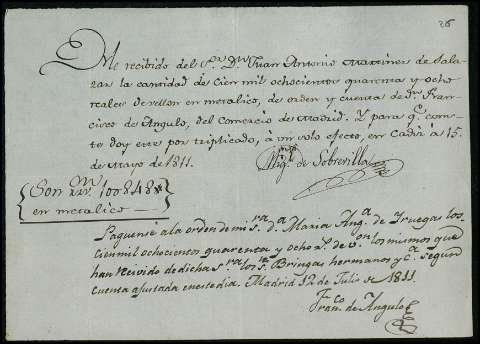 26
He recibido del Sr. Dn. Juan Antonio Martinez de Sala-
zar la cantidad de Cien mil ochocientos quarenta y ocho
reales de vellon en metalico, de orden y cuenta de Dn. Fran-
cisco de Angulo, del Comercio de Madrid. Y para qe. cons-
te doy este por triplicado, à un solo efecto, en Cadiz à 15
de Mayo de 1811.
Migl. de Sobrevilla
Son 100848
en metalico
Paguese à la orden de mi Sra. Da. Maria Anta. de Yruegas los
cien mil ochocientos quarenta y ocho rs. de von. los mismos que
han recivido de dicha Sra. los Sres. Bringas hermanos y Ca. segun
cuenta ajustada en este dia. Madrid 12 de Julio de 1811.
Franco. de Angulo